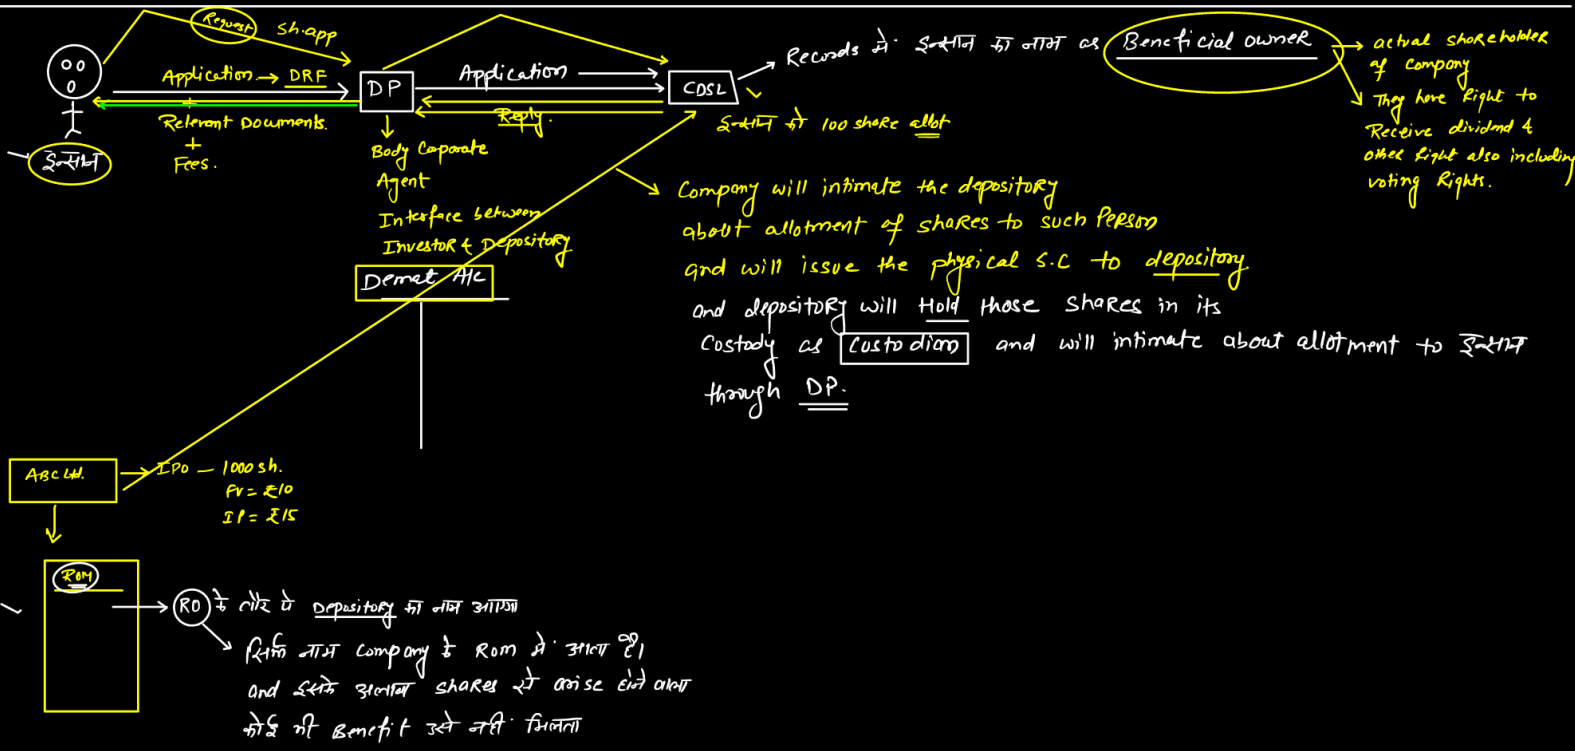 Request
Sh.app
Application → DRF
+
Relevant Documents.
+
Fees.
इन्सान
DP
Body Coporate
Agent
Interface between
Investor & Depository
Demat A/c
Application
Reply.
CDSL
Records में इन्सान का नाम as Beneficial owner
actual shareholder
of company
They have Right to
Receive dividend &
other Right also including
voting Rights.
इन्सान को 100 share allot
Company will intimate the depository
about allotment of shares to such Person
and will issue the physical S.C to depository
and depository will Hold those Shares in its
Custody as Custodian and will intimate about allotment to इन्सान
through DP.
ABC Ltd.
IPO — 1000 sh.
FV = ₹10
IP = ₹15
ROM
RO के तौर पे Depository का नाम आएगा
सिर्फ नाम Company के Rom में आता है।
and इसके अलावा shares से arise होने वाला
कोई भी Benefit उसे नहीं मिलता